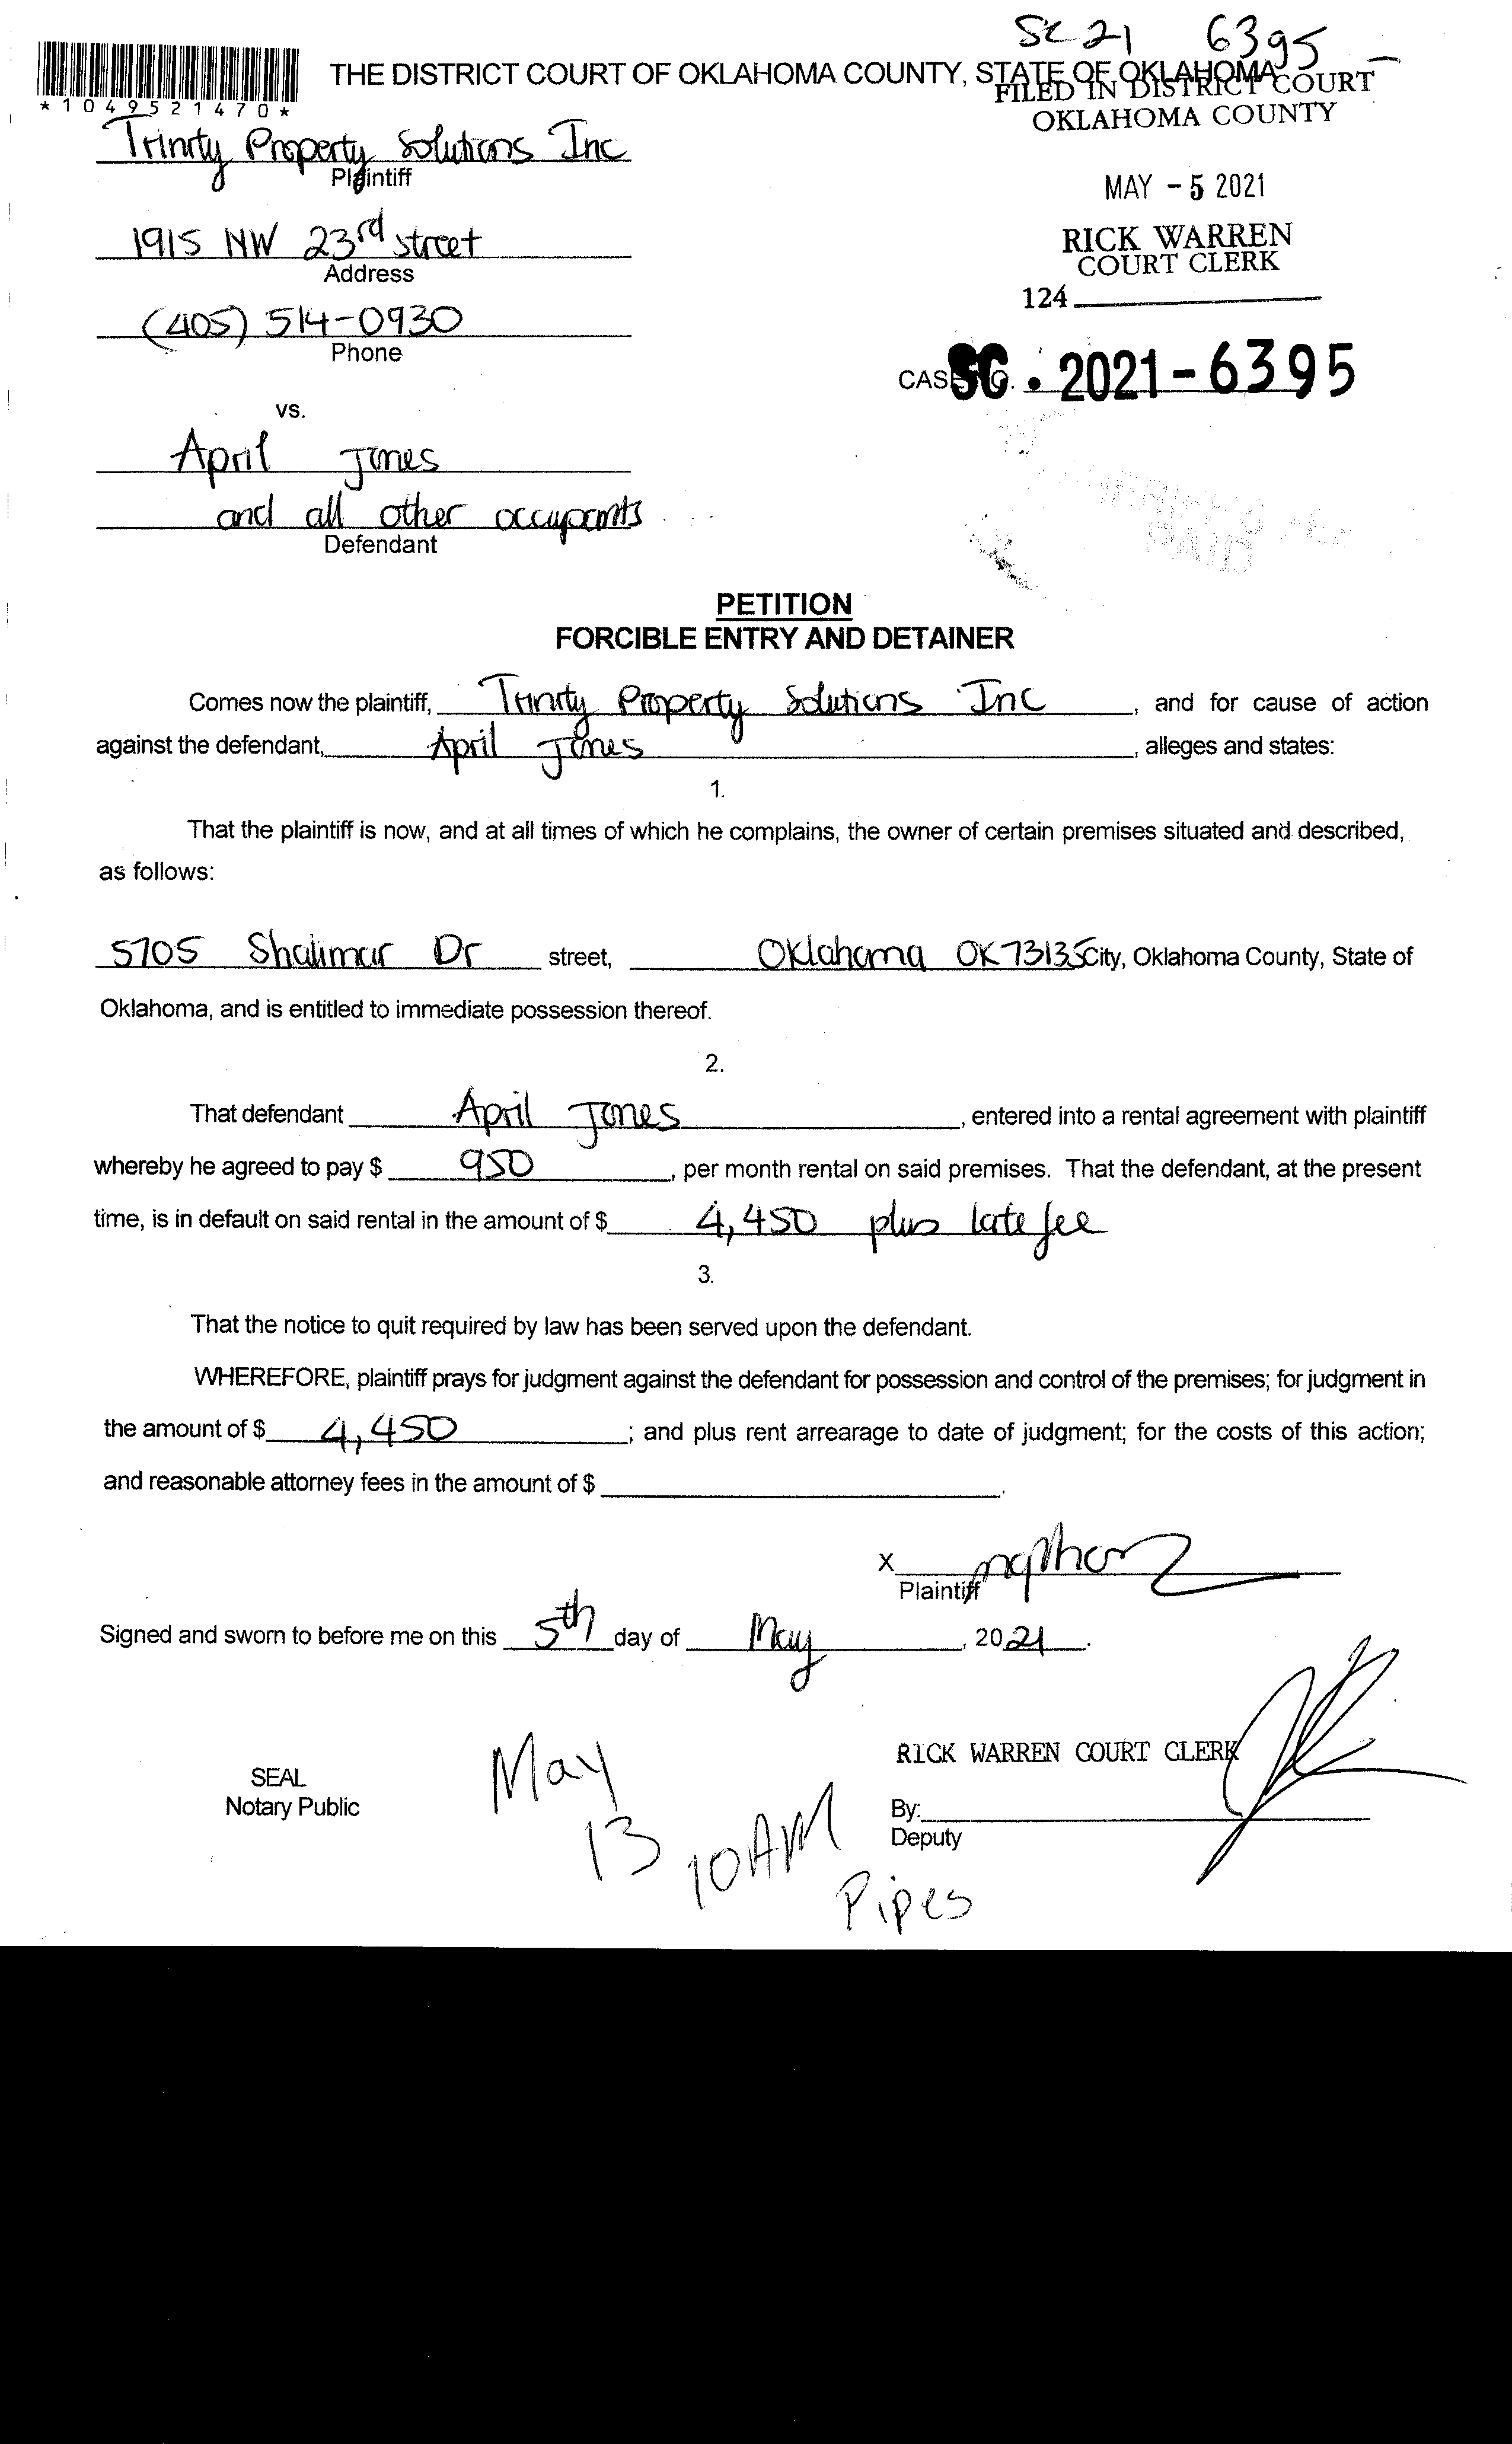 SC 21 6395
THE DISTRICT COURT OF OKLAHOMA COUNTY, STATE OF OKLAHOMA
FILED IN DISTRICT COURT
OKLAHOMA COUNTY
*1049521470*
Trinity Property Solutions Inc
Plaintiff
MAY - 5 2021
1915 NW 23rd street
Address
RICK WARREN
COURT CLERK
124
(405) 514-0930
Phone
CASE NO. SC . 2021-6395
vs.
April Jones
and all other occupants
Defendant
PAID
PETITION
FORCIBLE ENTRY AND DETAINER
Comes now the plaintiff, Trinity Property Solutions Inc, and for cause of action
against the defendant, April Jones, alleges and states:
1.
That the plaintiff is now, and at all times of which he complains, the owner of certain premises situated and described,
as follows:
5705 Shalimar Dr street, Oklahoma OK 73135 City, Oklahoma County, State of
Oklahoma, and is entitled to immediate possession thereof.
2.
That defendant April Jones, entered into a rental agreement with plaintiff
whereby he agreed to pay $ 950, per month rental on said premises. That the defendant, at the present
time, is in default on said rental in the amount of $ 4,450 plus late fee
3.
That the notice to quit required by law has been served upon the defendant.
WHEREFORE, plaintiff prays for judgment against the defendant for possession and control of the premises; for judgment in
the amount of $ 4,450; and plus rent arrearage to date of judgment; for the costs of this action;
and reasonable attorney fees in the amount of $ .
X
Plaintiff
Signed and sworn to before me on this 5th day of May, 2021.
RICK WARREN COURT CLERK
SEAL
Notary Public
By:
Deputy
May
13 10AM
Pipes